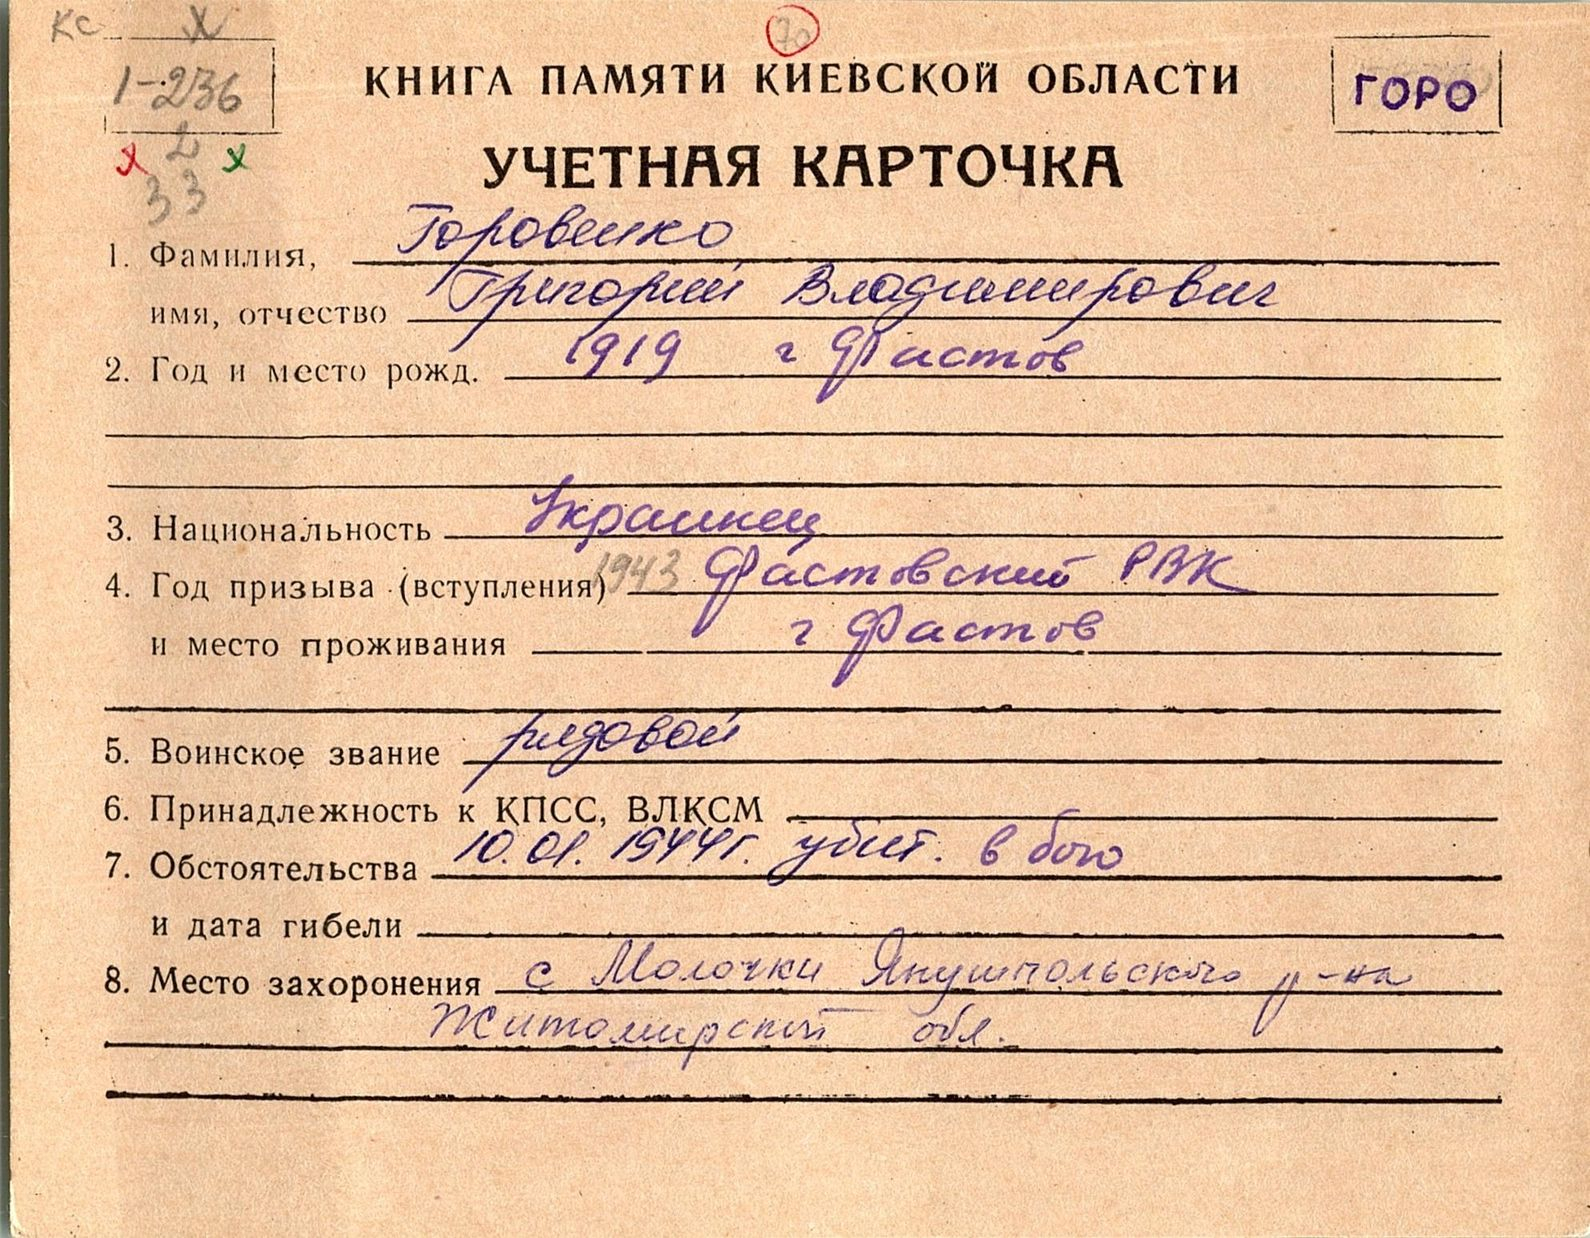 КС Х
70
1-236
КНИГА ПАМЯТИ КИЕВСКОЙ ОБЛАСТИ
ГОРО
х 2 х
УЧЕТНАЯ КАРТОЧКА
33
1. Фамилия, Горовенко
имя, отчество Григорий Владимирович
2. Год и место рожд. 1919 г Фастов
3. Национальность Украинец
4. Год призыва (вступления) 1943 Фастовский РВК
и место проживания г Фастов
5. Воинское звание рядовой
6. Принадлежность к КПСС, ВЛКСМ
7. Обстоятельства 10.01.1944г. убит. в бою
и дата гибели
8. Место захоронения с Молочки Янушпольского р-на
Житомирской обл.